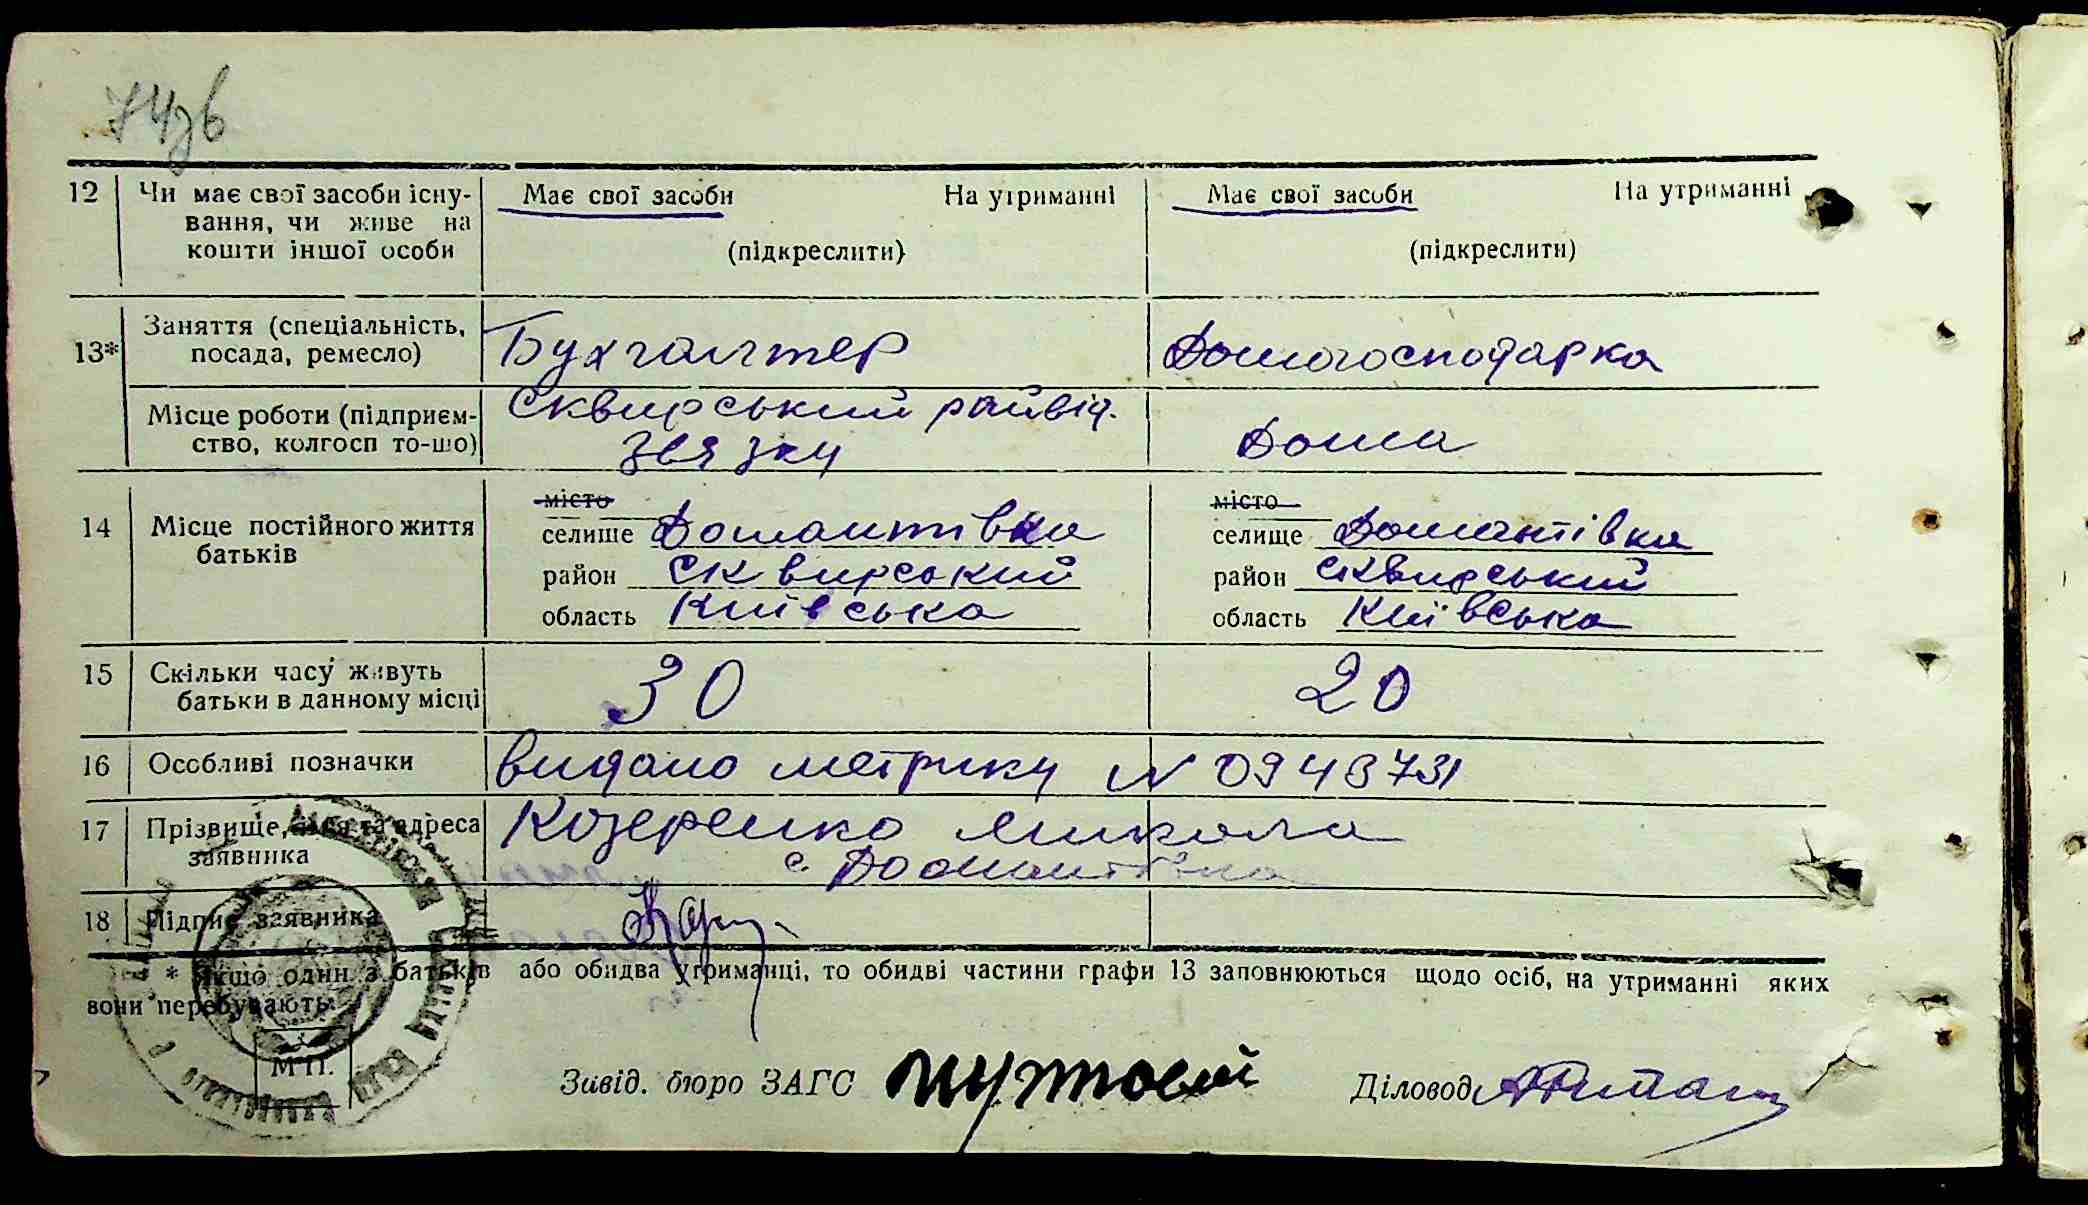 74зв
12 Чи має свої засоби існу- Має свої засоби На утриманні Має свої засоби На утриманні
вання, чи живе на
кошти іншої особи (підкреслити) (підкреслити)
13* Заняття (спеціальність, посада, ремесло) Бухгалтер Домогосподарка
Місце роботи (підприєм- Сквирський райвід.
ство, колгосп то-що) звязку Дома
місто місто
14 Місце постійного життя селище Домантівка селище Домантівка
батьків район Сквирський район Сквирський
область Київська область Київська
15 Скільки часу живуть
батьки в данному місці 30 20
16 Особливі позначки видано метрику N 0943731
17 Прізвище, ім'я та адреса Козеренко Микола
заявника с. Домантівка
18 Підпис заявника
* Якщо один з батьків або обидва утриманці, то обидві частини графи 13 заповнюються щодо осіб, на утриманні яких
вони перебувають.
М П.
Завід. бюро ЗАГС Діловод